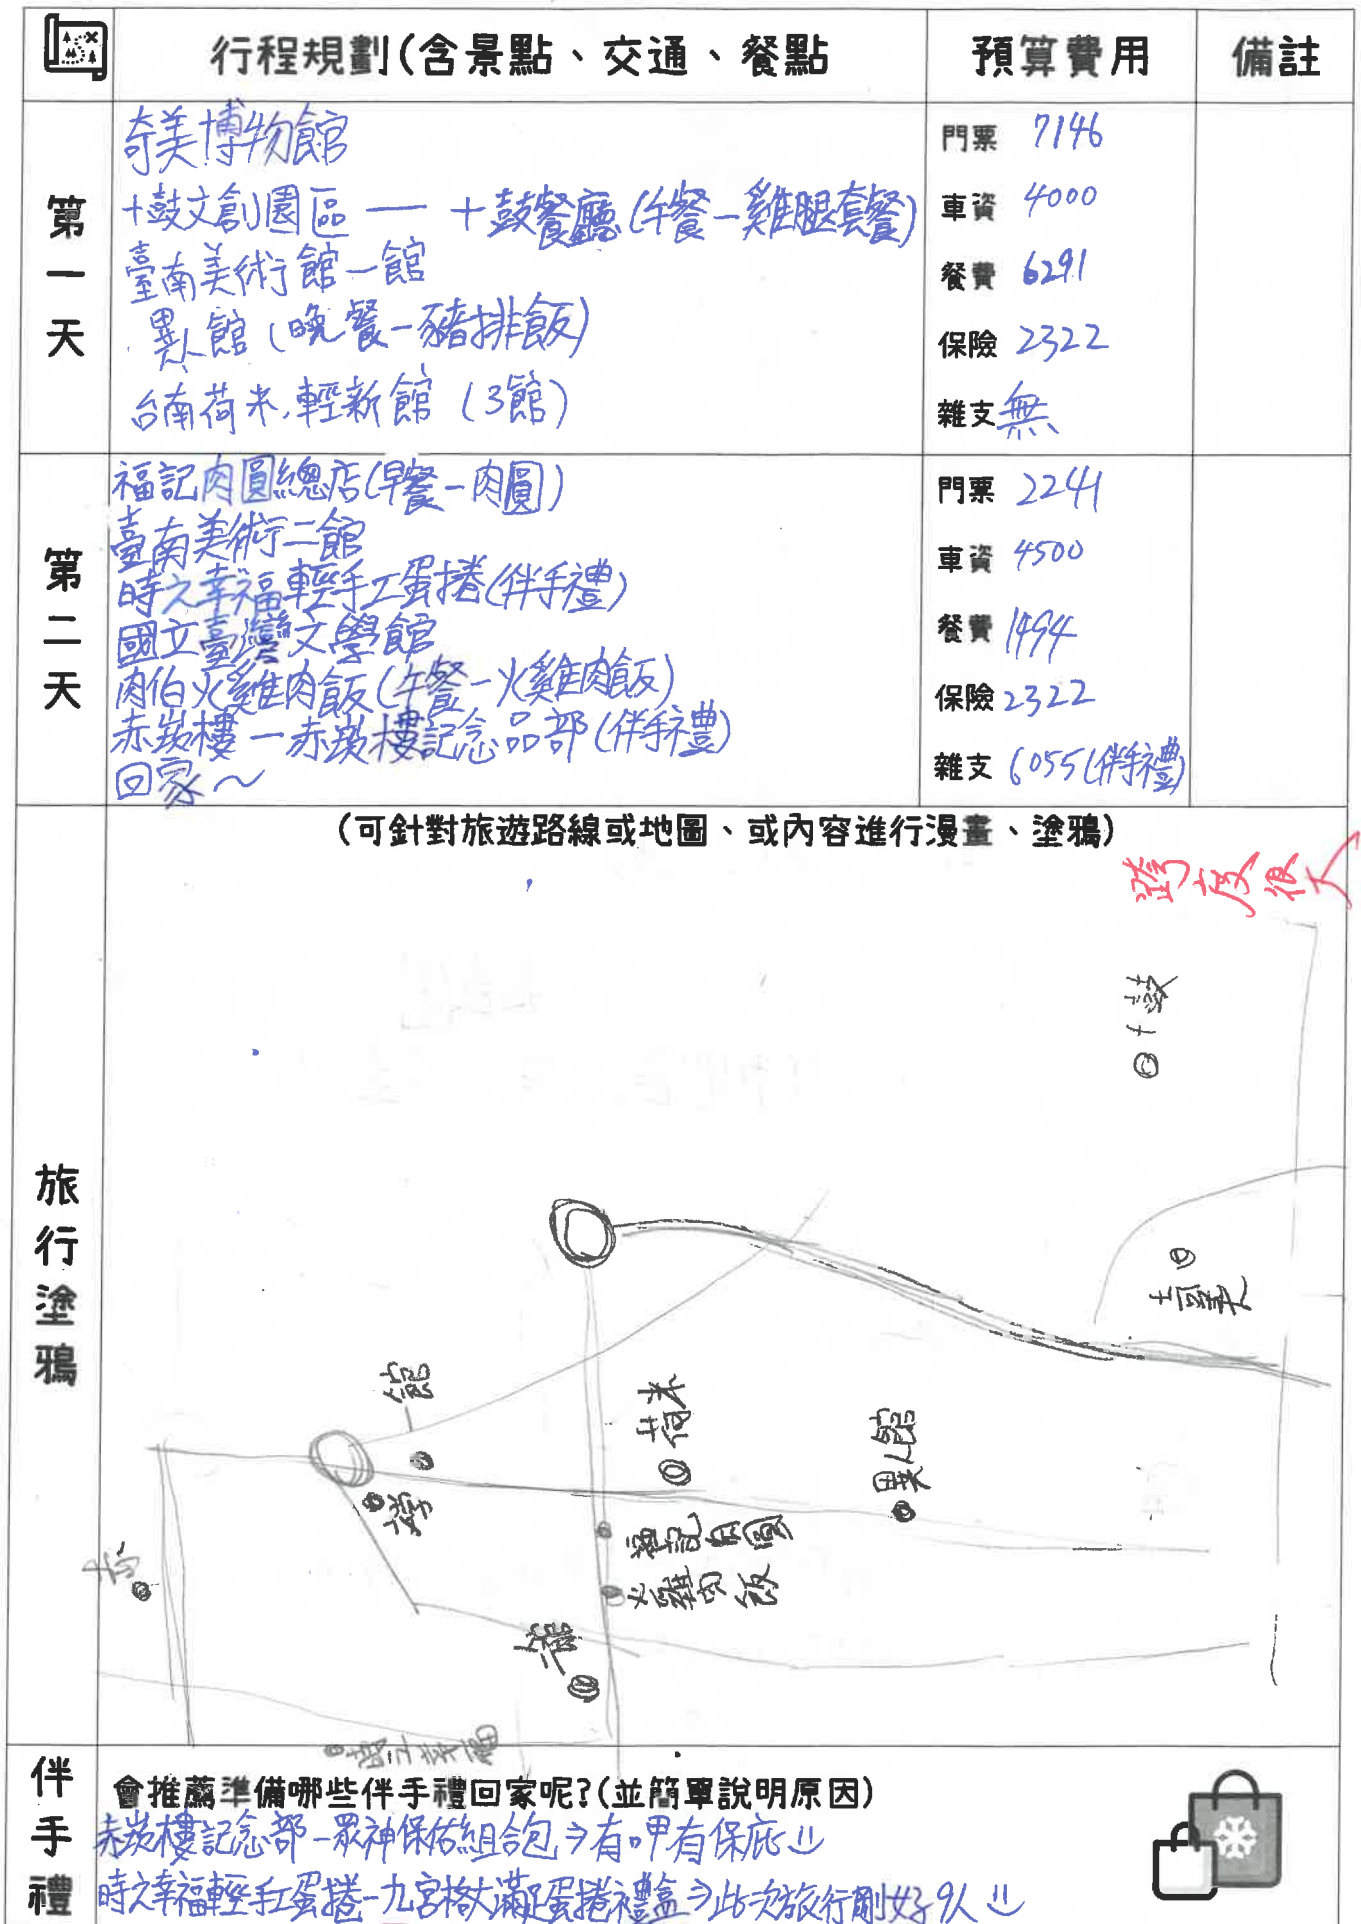 行程規劃(含景點、交通、餐點
預算費用
備註
第一天
奇美博物館
十鼓文創園區 — 十鼓餐廳(午餐-雞腿套餐)
臺南美術館一館
異人館(晚餐-豬排飯)
台南荷米.輕新館(3館)
門票 7146
車資 4000
餐費 6291
保險 2322
雜支 無
第二天
福記肉圓總店(早餐-肉圓)
臺南美術二館
時之幸福輕手工蛋捲(伴手禮)
國立臺灣文學館
肉伯火雞肉飯(午餐-火雞肉飯)
赤崁樓-赤崁樓記念品部(伴手禮)
回家~
門票 2241
車資 4500
餐費 1494
保險 2322
雜支 6055(伴手禮)
旅行塗鴉
(可針對旅遊路線或地圖、或內容進行漫畫、塗鴉)
跨度很大
十鼓
奇美
一館
荷米
異人館
文學
福記肉圓
火雞肉飯
赤
二館
伴手禮
會推薦準備哪些伴手禮回家呢?(並簡單說明原因)
赤崁樓記念部-眾神保佑組合包→有呷有保庇
時之幸福輕手工蛋捲-九宮格大滿足蛋捲禮盒→此次旅行剛好9人